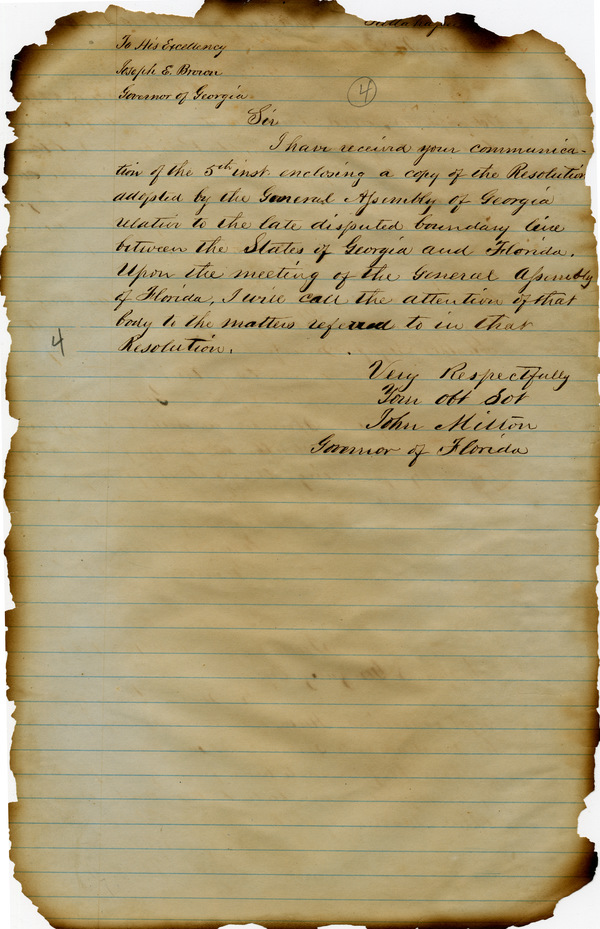 To His Excellency
Joseph E. Brown
Governor of Georgia
4
Sir
I have received your communica-
tion of the 5th inst. enclosing a copy of the Resolution
adopted by the General Assembly of Georgia
relative to the late disputed boundary line
between the States of Georgia and Florida.
Upon the meeting of the General Assembly
of Florida, I will call the attention of that
body to the matters referred to in that
Resolution.
4
Very Respectfully
Your obt Svt
John Milton
Governor of Florida